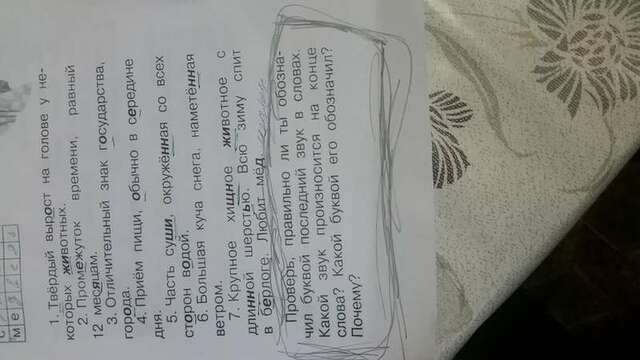 1. Твёрдый вырост на голове у не-
которых животных.
2. Промежуток времени, равный
12 месяцам.
3. Отличительный знак государства,
города.
4. Приём пищи, обычно в середине
дня.
5. Часть суши, окружённая со всех
сторон водой.
6. Большая куча снега, наметённая
ветром.
7. Крупное хищное животное с
длинной шерстью. Всю зиму спит
в берлоге. Любит мёд.
Проверь, правильно ли ты обозна-
чил буквой последний звук в словах.
Какой звук произносится на конце
слова? Какой буквой его обозначил?
Почему?